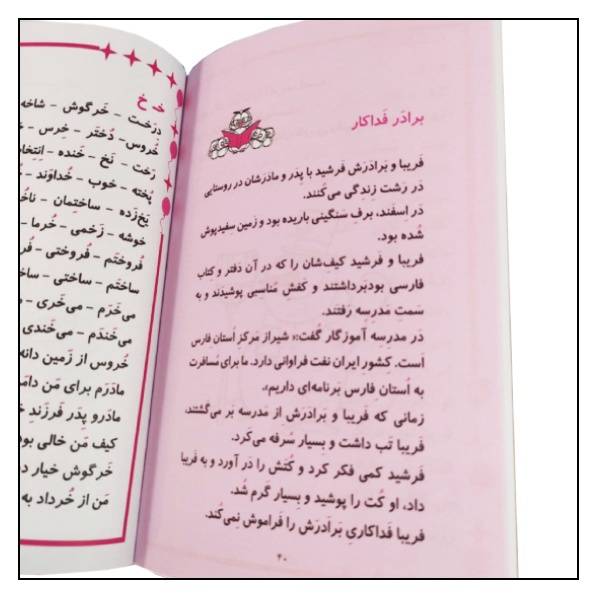 برادَر فَداکار
فَریبا و بَرادَرَش فَرشید با پِدَر و مادَرِشان در روستایی
دَر رَشت زِندِگی می‌کُنَند.
دَر اسفند، برفِ سَنگینی باریده بود و زَمین سفیدپوش
شُده بود.
فَریبا و فَرشید کیف‌شان را که در آن دَفتر و کتاب
فارسی بودبَرداشتَند و کَفش مُناسِبی پوشیدَند و به
سَمتِ مَدرِسه رَفتَند.
دَر مدرسه آموزگار گُفت:« شیراز مَرکَزِ اُستان فارس
اَست. کشور ایران نفت فَراوانی دارد. ما برای مُسافِرت
به اُستانِ فارِس بَرنامه‌ای داریم».
زمانی که فَریبا و بَرادَرَش از مدرسه بَر می‌گشتند،
فَریبا تَب داشت و بسیار سُرفه می‌کَرد.
فَرشید کَمی فکر کرد و کُتَش را دَر آورد و به فَریبا
داد، او کُت را پوشید و بِسیار گَرم شُد.
فَریبا فَداکاریِ بَرادَرَش را فَراموش نِمی‌کُند.
۴۰
خـ خ
دِرَخت - خَرگوش - شاخه
خُروس - دُختَر - خِرس -
رَخت - نَخ - خَنده -
پُخته - خوب - خُداوَند -
یَخ‌زَده - ساختِمان -
خوشه - زَخمی - خُرما -
فُروختَم - فُروختی -
ساختَم - ساختی -
می‌خَرَم - می‌خَری -
می‌خَندَم - می‌خَندی
خُروس از زَمین دانه
مادَرَم برای مَن
مادَرو پِدَر فَرزَندِ
کیف مَن خالی بود
خَرگوش خیار
مَن از خُرداد به